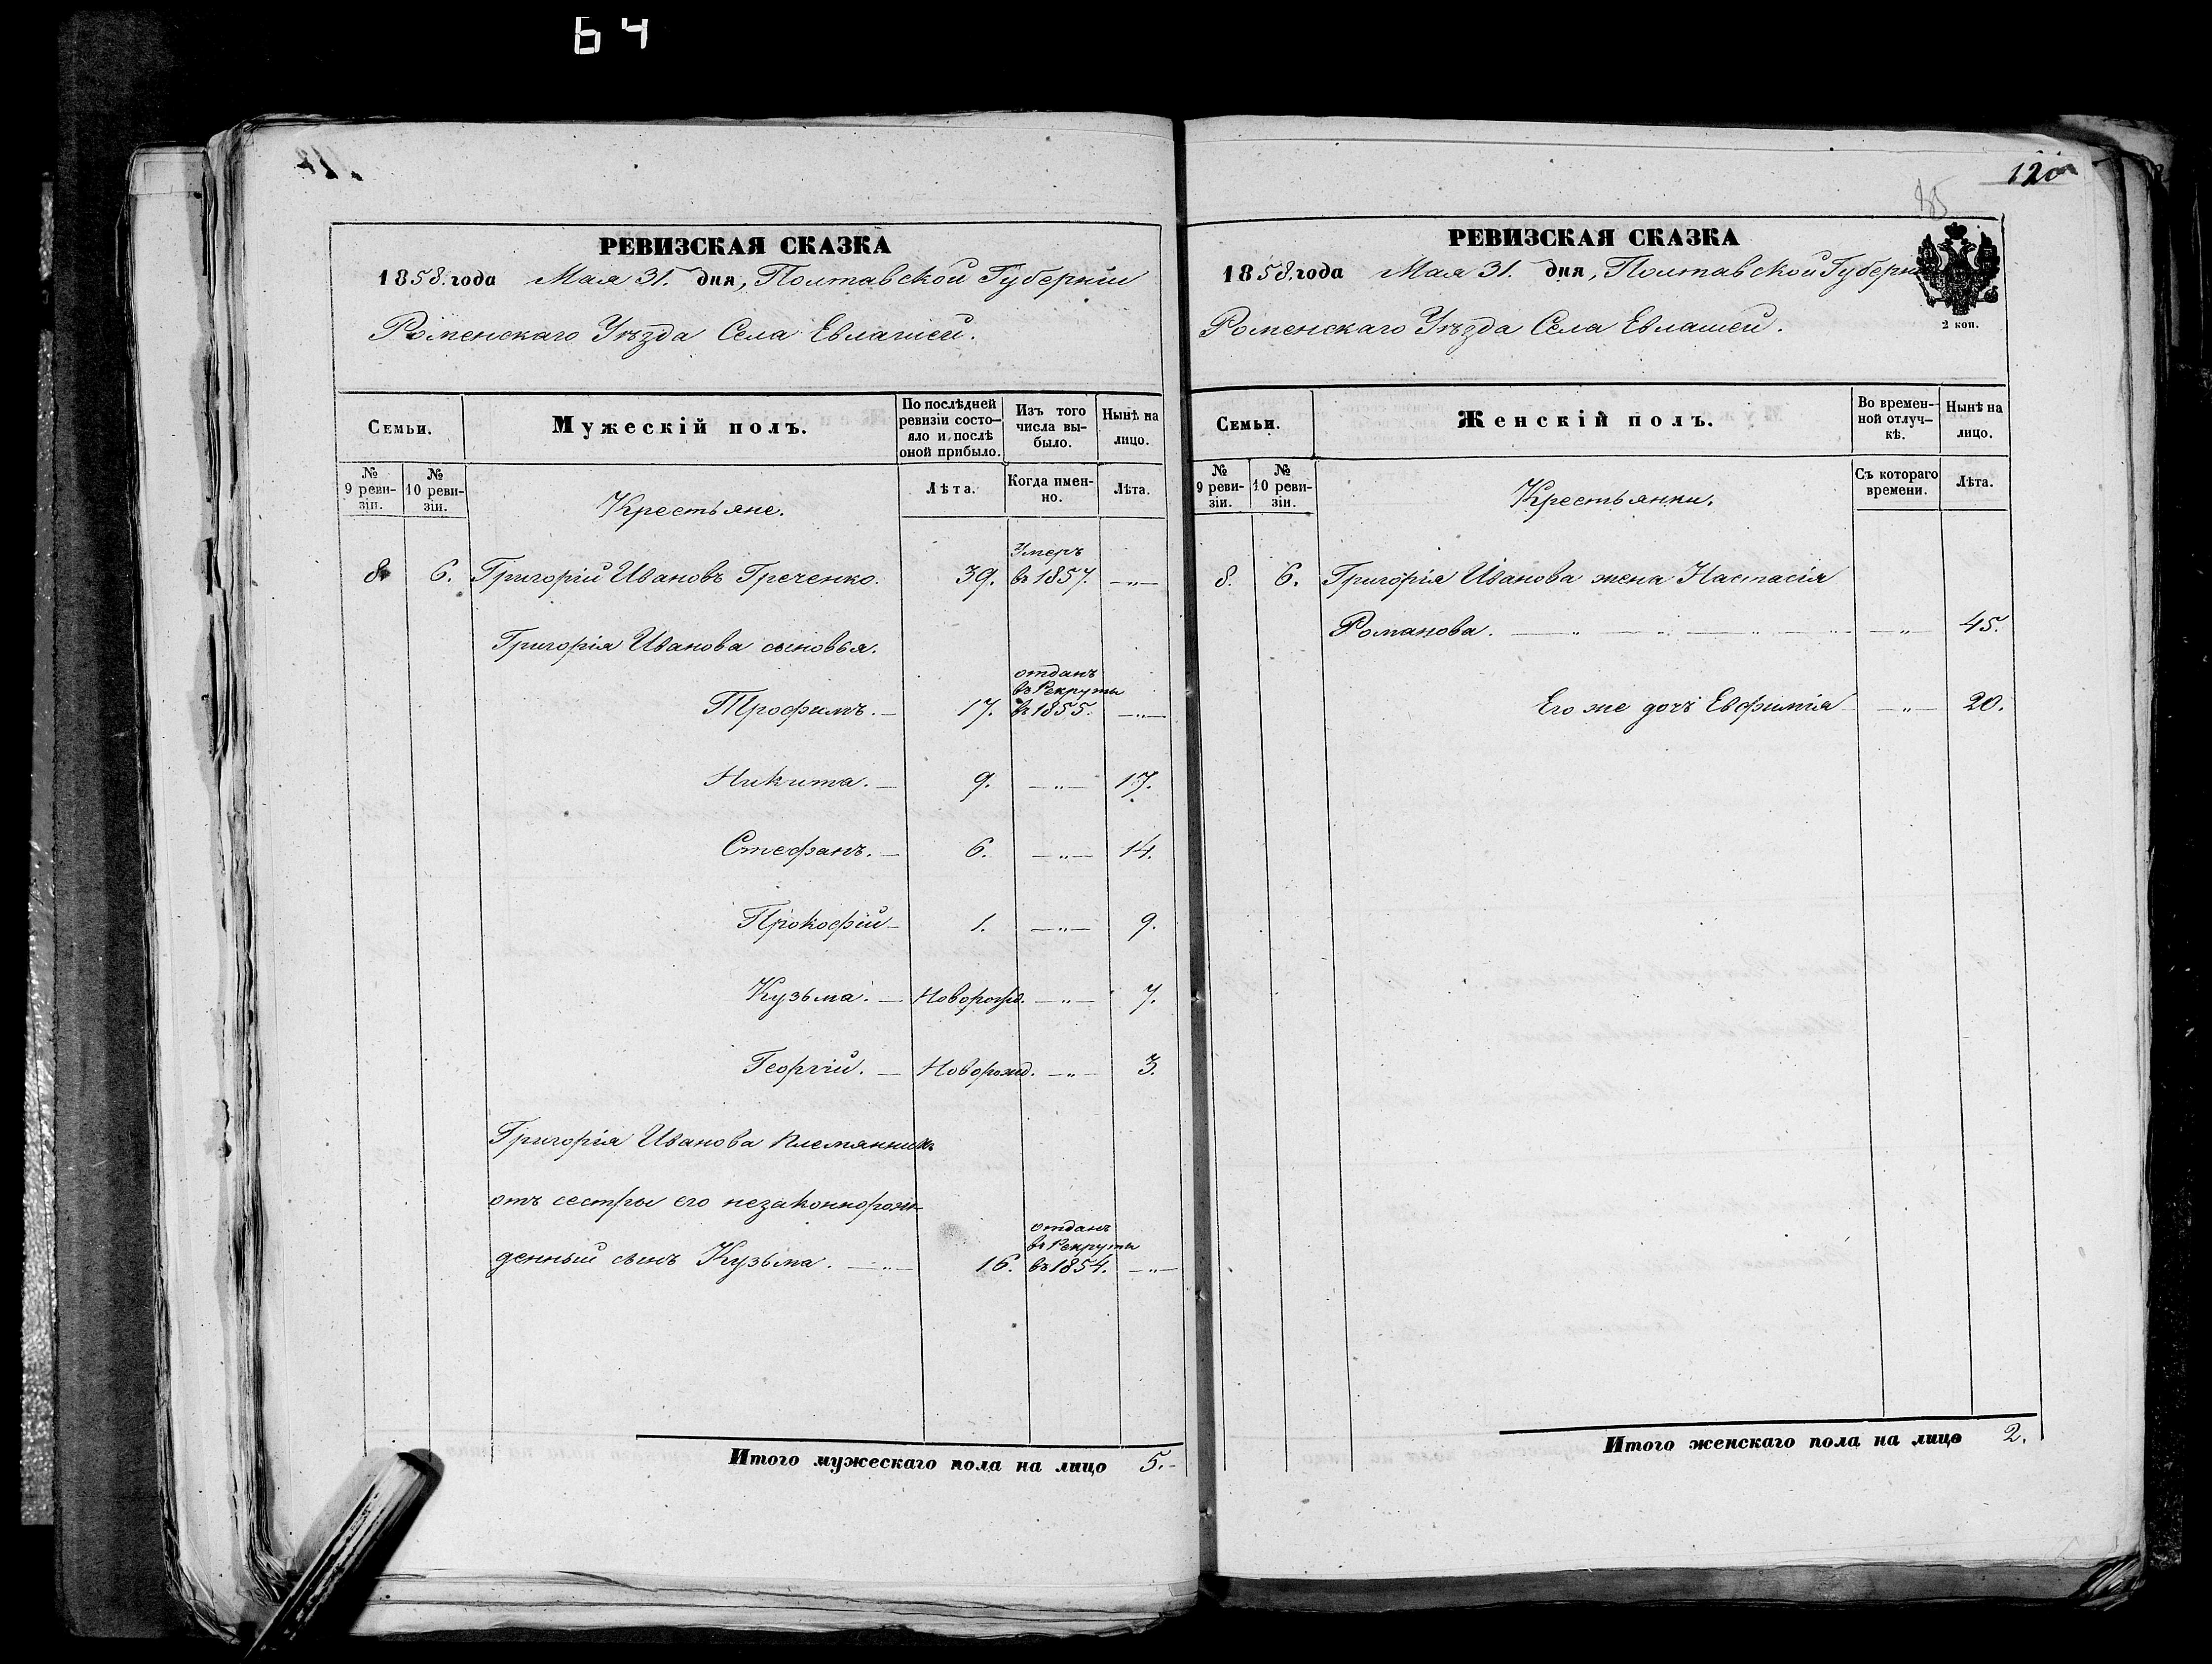 64
РЕВИЗСКАЯ СКАЗКА
1858. года Мая 31. дня, Полтавской Губерніи
Роменскаго Уѣзда Села Евлашей.
Семьи.
Мужескій полъ.
По послѣдней ревизіи состояло и послѣ оной прибыло.
Изъ того числа выбыло.
Нынѣ на лицо.
№ 9 ревизіи.
№ 10 ревизіи.
Крестьяне.
Лѣта.
Когда именно.
Лѣта.
8. 6. Григорій Ивановъ Греченко. 39. Умеръ въ 1857. —„—
Григорія Иванова сыновья.
Трофимъ. — 17. отданъ въ Рекруты въ 1855. —„—
Никита. — 9. —„— 17.
Стефанъ. — 6. —„— 14.
Прокофій — 1. —„— 9.
Кузьма. — Новорожд. —„— 7.
Георгій. — Новорожд. —„— 3.
Григорія Иванова племянникъ
отъ сестры его незаконнорож-
денный сынъ Кузьма. —„— 16. отданъ въ Рекруты въ 1854. —„—
Итого мужескаго пола на лицо 5.
120
РЕВИЗСКАЯ СКАЗКА
1858. года Мая 31. дня, Полтавской Губерн
2 коп.
Роменскаго Уѣзда Села Евлашей.
Семьи.
Женскій полъ.
Во временной отлучкѣ.
Нынѣ на лицо.
№ 9 ревизіи.
№ 10 ревизіи.
Крестьянки.
Съ котораго времени.
Лѣта.
8. 6. Григорія Иванова жена Настасія
Романова. —„— 45.
Его же дочь Евфимія —„— 20.
Итого женскаго пола на лицо 2.